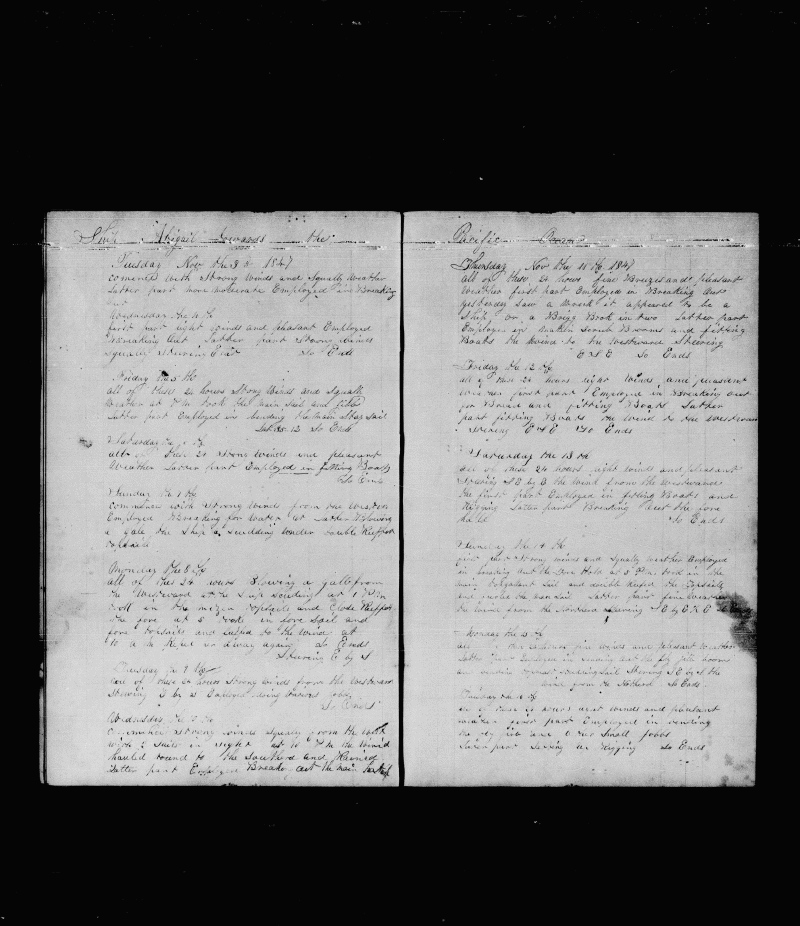 Ship Abigail towards the
Tuesday Nov the 3 1847
comences with Strong Winds and Squaly Weather
Latter part more moderate Employed in Breaking
out
Wednesday the 4 th
first part light winds and pleasant Employed
Breaking out Latter part strong winds
squaly steering East So Ends
Friday the 5 th
all of these 24 hours strong winds and Squaly
weather at took the main sail and
Latter part Employed in bending the main Stay sail
Lat So Ends
Saturday the th
all of these 24 strong winds and pleasant
Weather Latter part Employed in fitting Boats
So Ends
Sunday the th
comences with strong wind from the Western
Employed Breaking for water Latter Blowing
a gale the Ship Scudding under double Reefed
topsails
Monday the 8 th
all of this 24 hours Blowing a gale from
the Westward the Ship scuding at 1 PM
roll in the mizen topsails and Close Reefed
the fore at 5 took in fore sail and
fore topsails and to the wind at
10 a m again So Ends
Steering E by S
Tuesday the 9 th
all of these 24 hours strong winds from the Westward
Steering E by S Employed doing various jobs
So Ends
Wednesday the th
comences strong winds squaly from the West
with 2 sails in sight at 10 the wind
hauled round to the Southerd and Rained
Latter part Employed Breaking out the main
Pacific Ocean
Thursday Nov the 11 th 1847
all of these 24 hours fine Breezes and pleasant
weather first part Employed in Breaking out
yesterday saw a wreck it apeared to be a
Ship, or a Brigg Broke in two Latter part
Employed in makin Scrub Brooms and fitting
Boats the wind to the westward Steering
E S E So Ends
Friday the 12 th
all of these 24 hours light winds and pleasant
weather first part Employed in Breaking out
for Bread and fitting Boats Latter
part fitting Boats the wind to the westward
steering E S E So Ends
Saturday the 13 th
all of these 24 hours light winds and pleasant
Steering SE by E the wind from the westward
the first part Employed in fitting Boats and
Rigging Latter part Breaking out the fore
hold So Ends
Sunday the 14 th
first part strong winds and Squaly weather Employed
in Breaking out the fore Hold at 5 P.m. took in the
main topgalant sail and double Reefed the topsails
and furled the mainsail Latter part fine weather
the wind from the Northerd steering S E by E So Ends
Monday the 15 th
all this 24 hours fine winds and pleasant weather
Latter part Employed in sending out the fly jib boom
and Steering SE by S the
wind from the Northerd So Ends
Tuesday the 16 th
all of these 24 hours light winds and pleasant
weather first part Employed in bending
the fly jib and other Small jobbs
Latter part Setting up Rigging So Ends